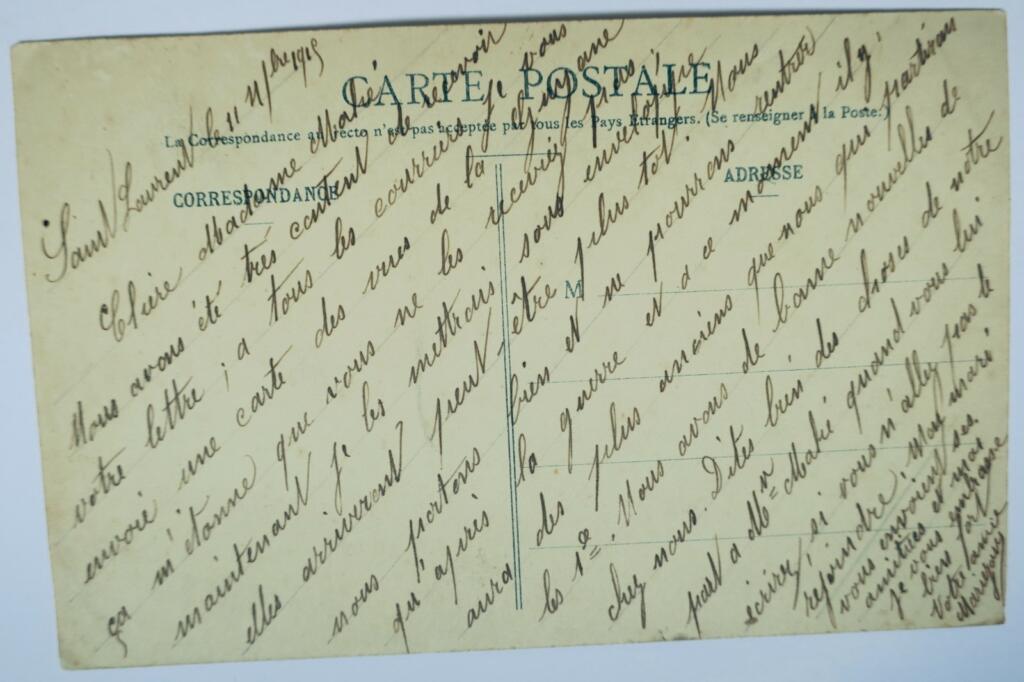 CARTE POSTALE
La Correspondance au recto n'est pas acceptée par tous les Pays Etrangers. (Se renseigner à la Poste.)
CORRESPONDANCE
ADRESSE
M
Saint Laurent le 11 11/bre 1915
Chère Madame Matié
Nous avons été très content de recevoir
votre lettre ; a tous les courriers je vous
envoié une carte des vues de la guyane
ça m'étonne que vous ne les receviez pas !
maintenant je les mettrais sous enveloppe
elles arriveront peut-être plus tôt. Nous
nous portons bien et ne pourrons rentrer
qu'après la guerre et a ce moment il y
aura des plus anciens que nous qui partirons
les 1e. Nous avons de bonne nouvelles de
chez nous. Dites bien des choses de notre
part a Mr Matié quand vous lui
écrirez, si vous n'allez pas le
rejoindre. Mon mari
vous envoient ses
amitiés et moi
je vous embrasse
bien fort
Votre amie